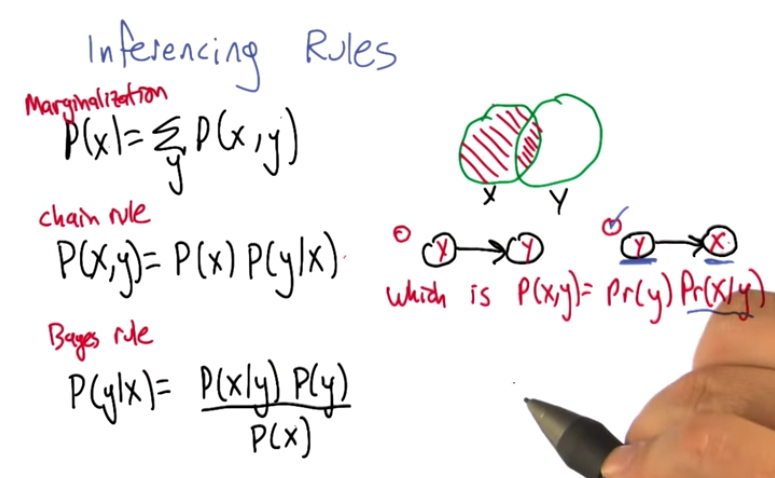 Inferencing Rules
Marginalization
P(x)= Σ P(x,y)
y
chain rule
P(x,y)= P(x) P(y|x).
Bayes rule
P(y|x)= P(x|y) P(y)
P(x)
X Y
X Y
Y X
which is P(x,y)= Pr(y) Pr(x|y)